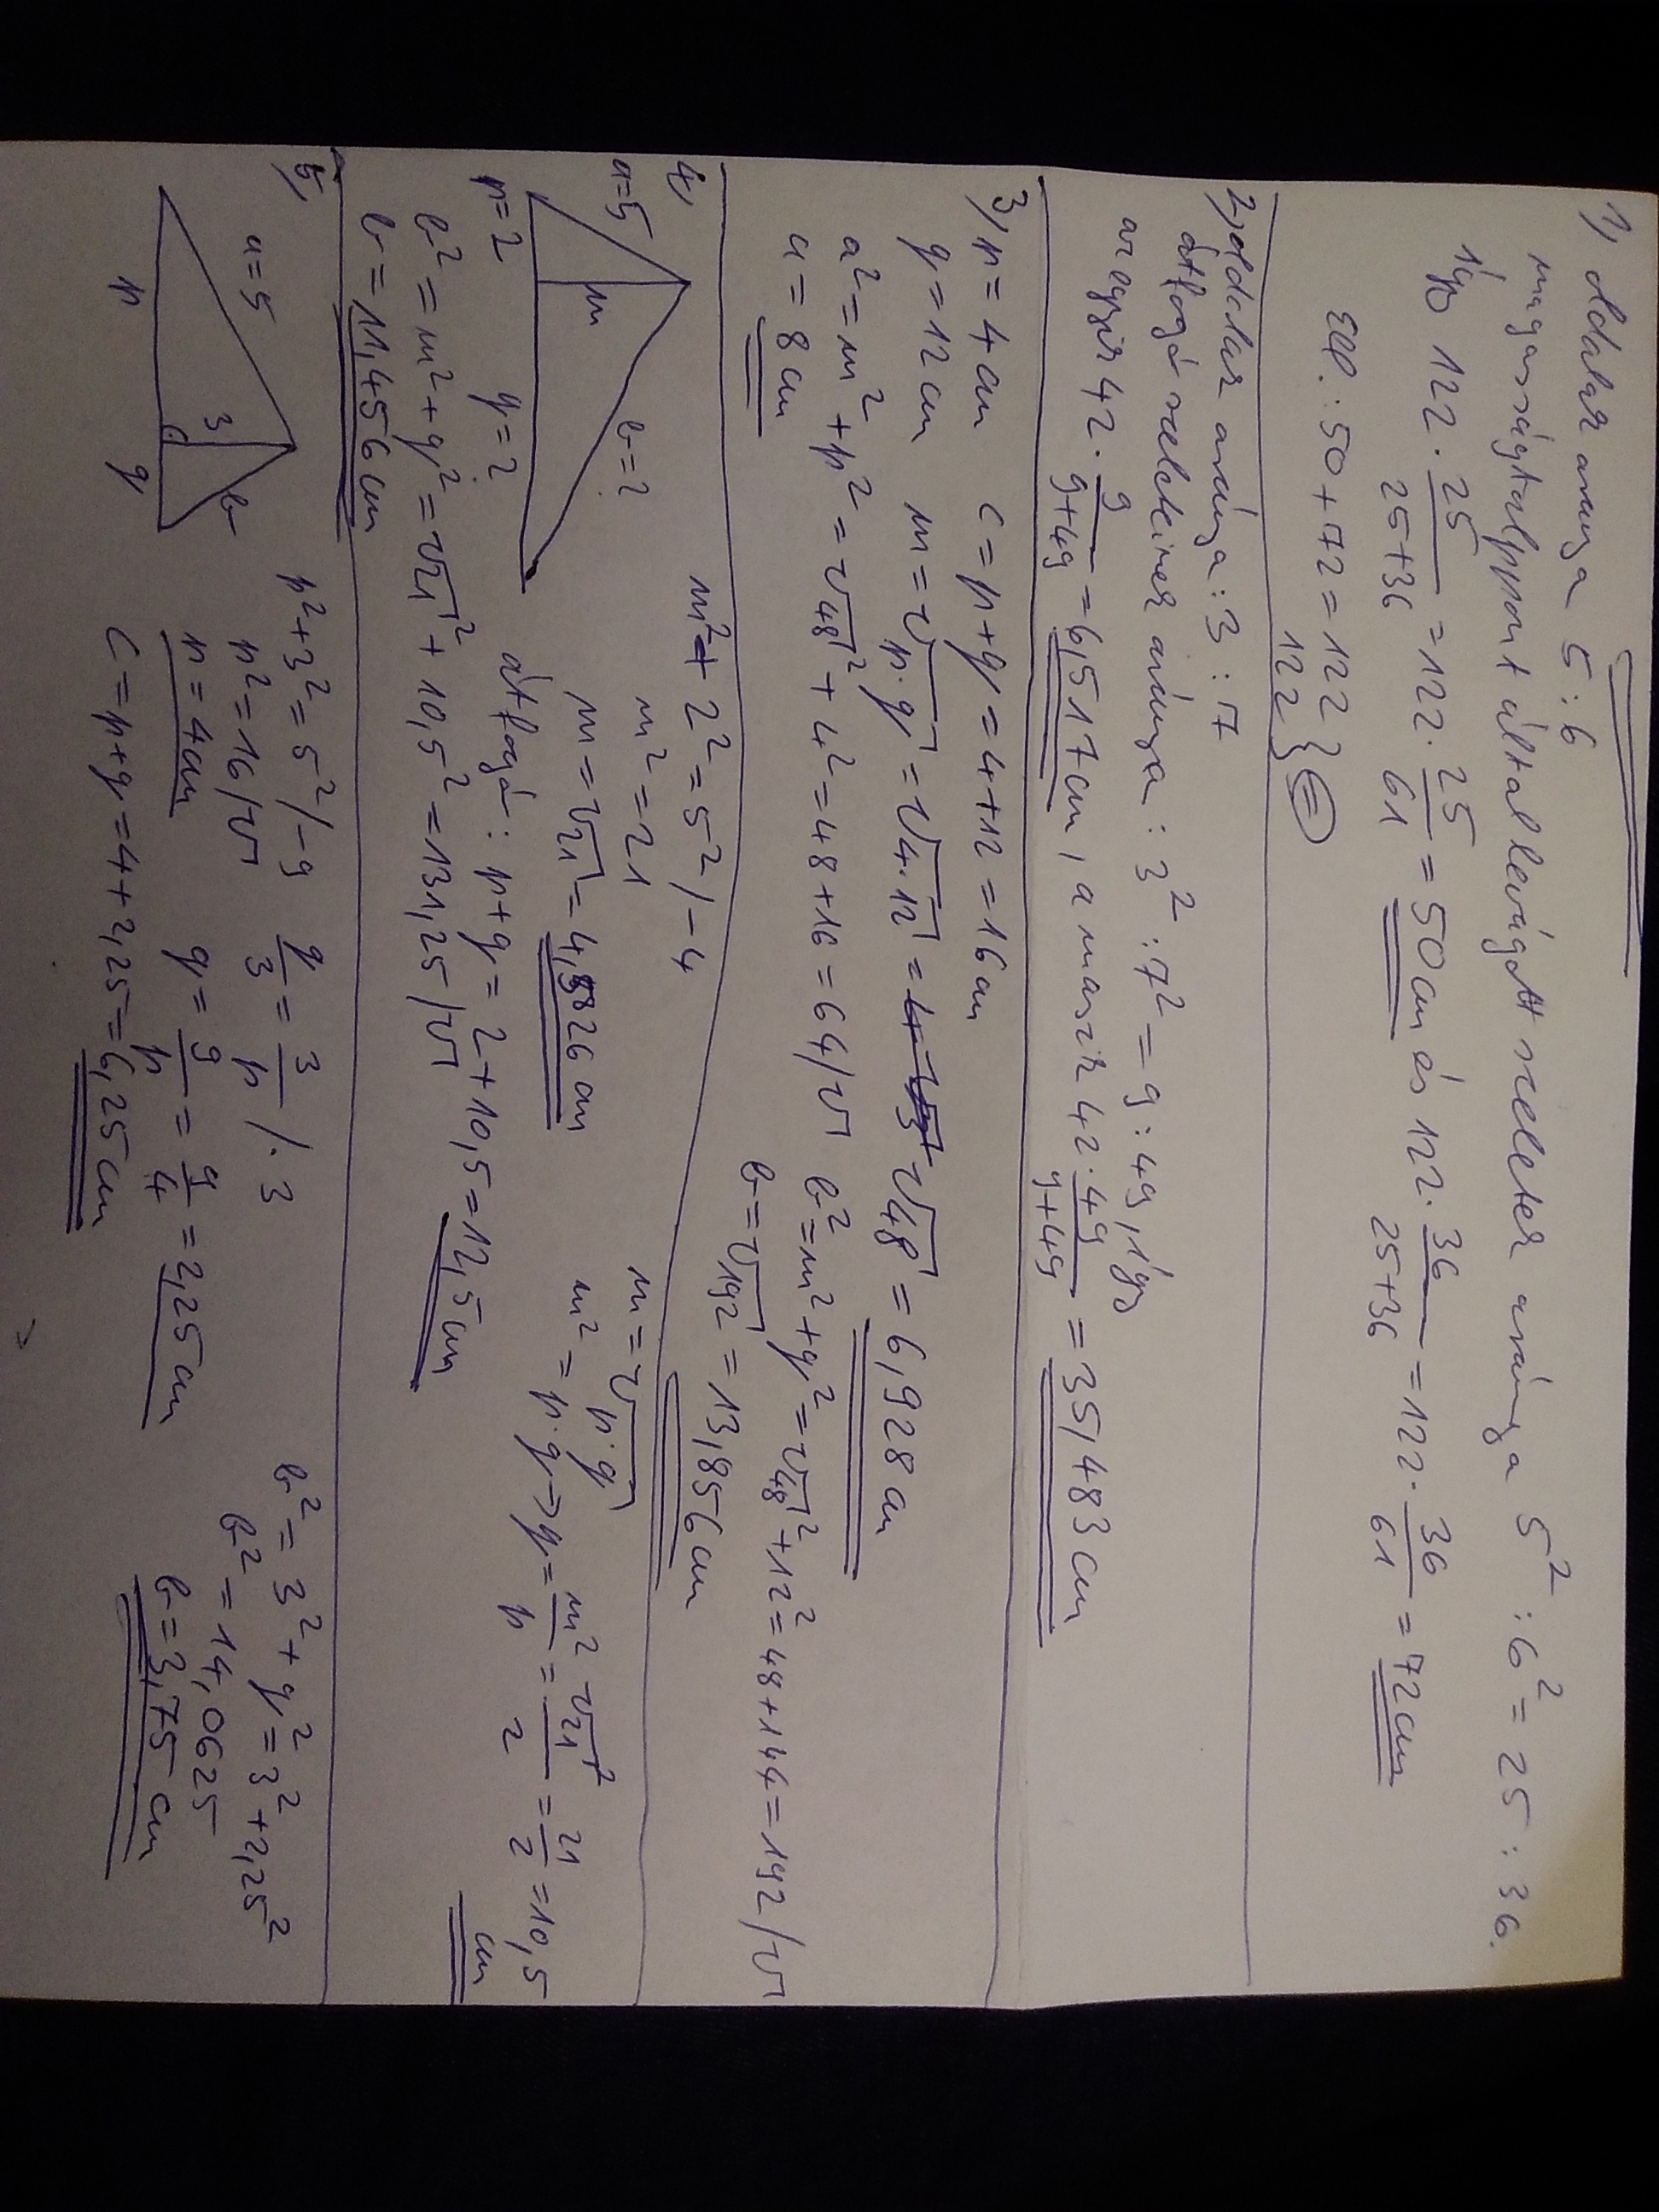 1, oldalak aránya 5:6
magasságtalppont által levágott szeletek aránya 5² : 6² = 25 : 36.
így 122 · 25/(25+36) = 122 · 25/61 = 50 cm és 122 · 36/(25+36) = 122 · 36/61 = 72 cm
Ell.: 50+72 = 122
122 } (=)
2, oldalak aránya: 3:7
átfogó szeleteinek aránya: 3² : 7² = 9 : 49, így
az egyik 42 · 9/(9+49) = 6,517 cm, a másik 42 · 49/(9+49) = 35,483 cm
3, p = 4 cm c = p+q = 4+12 = 16 cm
q = 12 cm m = √p·q = √4·12 = √48 = 6,928 cm
a² = m² + p² = √48² + 4² = 48+16 = 64 /√ b² = m² + q² = √48² + 12² = 48+144 = 192 /√
a = 8 cm b = √192 = 13,856 cm
4, a=5 m b=? p=2 q=?
m² + 2² = 5² /-4 m = √p·q
m² = 21 m² = p·q → q = m²/p = √21²/2 = 21/2 = 10,5 cm
m = √21 = 4,5826 cm
átfogó: p+q = 2+10,5 = 12,5 cm
b² = m² + q² = √21² + 10,5² = 131,25 /√
b = 11,456 cm
5, a=5 3 b p q
p² + 3² = 5² /-9 q/3 = 3/p /·3 b² = 3² + q² = 3² + 2,25²
p² = 16 /√ q = 9/p = 9/4 = 2,25 cm b² = 14,0625
p = 4 cm b = 3,75 cm
c = p+q = 4+2,25 = 6,25 cm